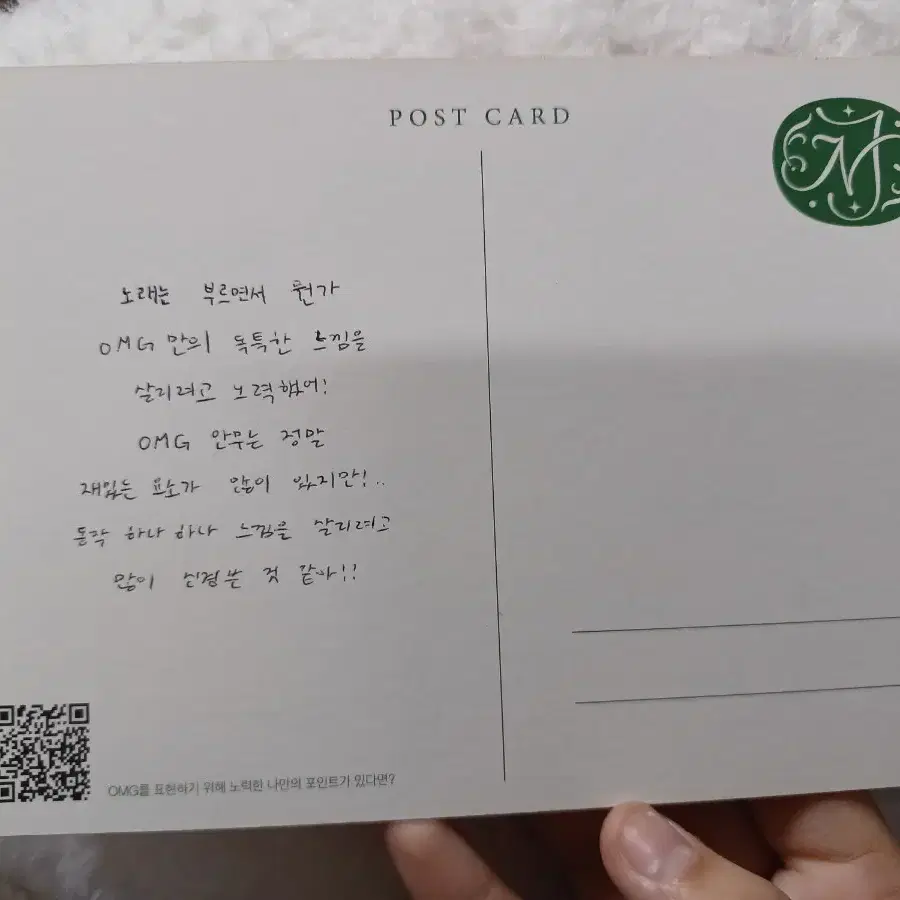 POST CARD
M
노래는 부르면서 뭔가
OMG 만의 독특한 느낌을
살리려고 노력했어!
OMG 안무는 정말
재밌는 요소가 많이 있지만!..
동작 하나 하나 느낌을 살리려고
많이 신경쓴 것 같아!!
OMG를 표현하기 위해 노력한 나만의 포인트가 있다면?